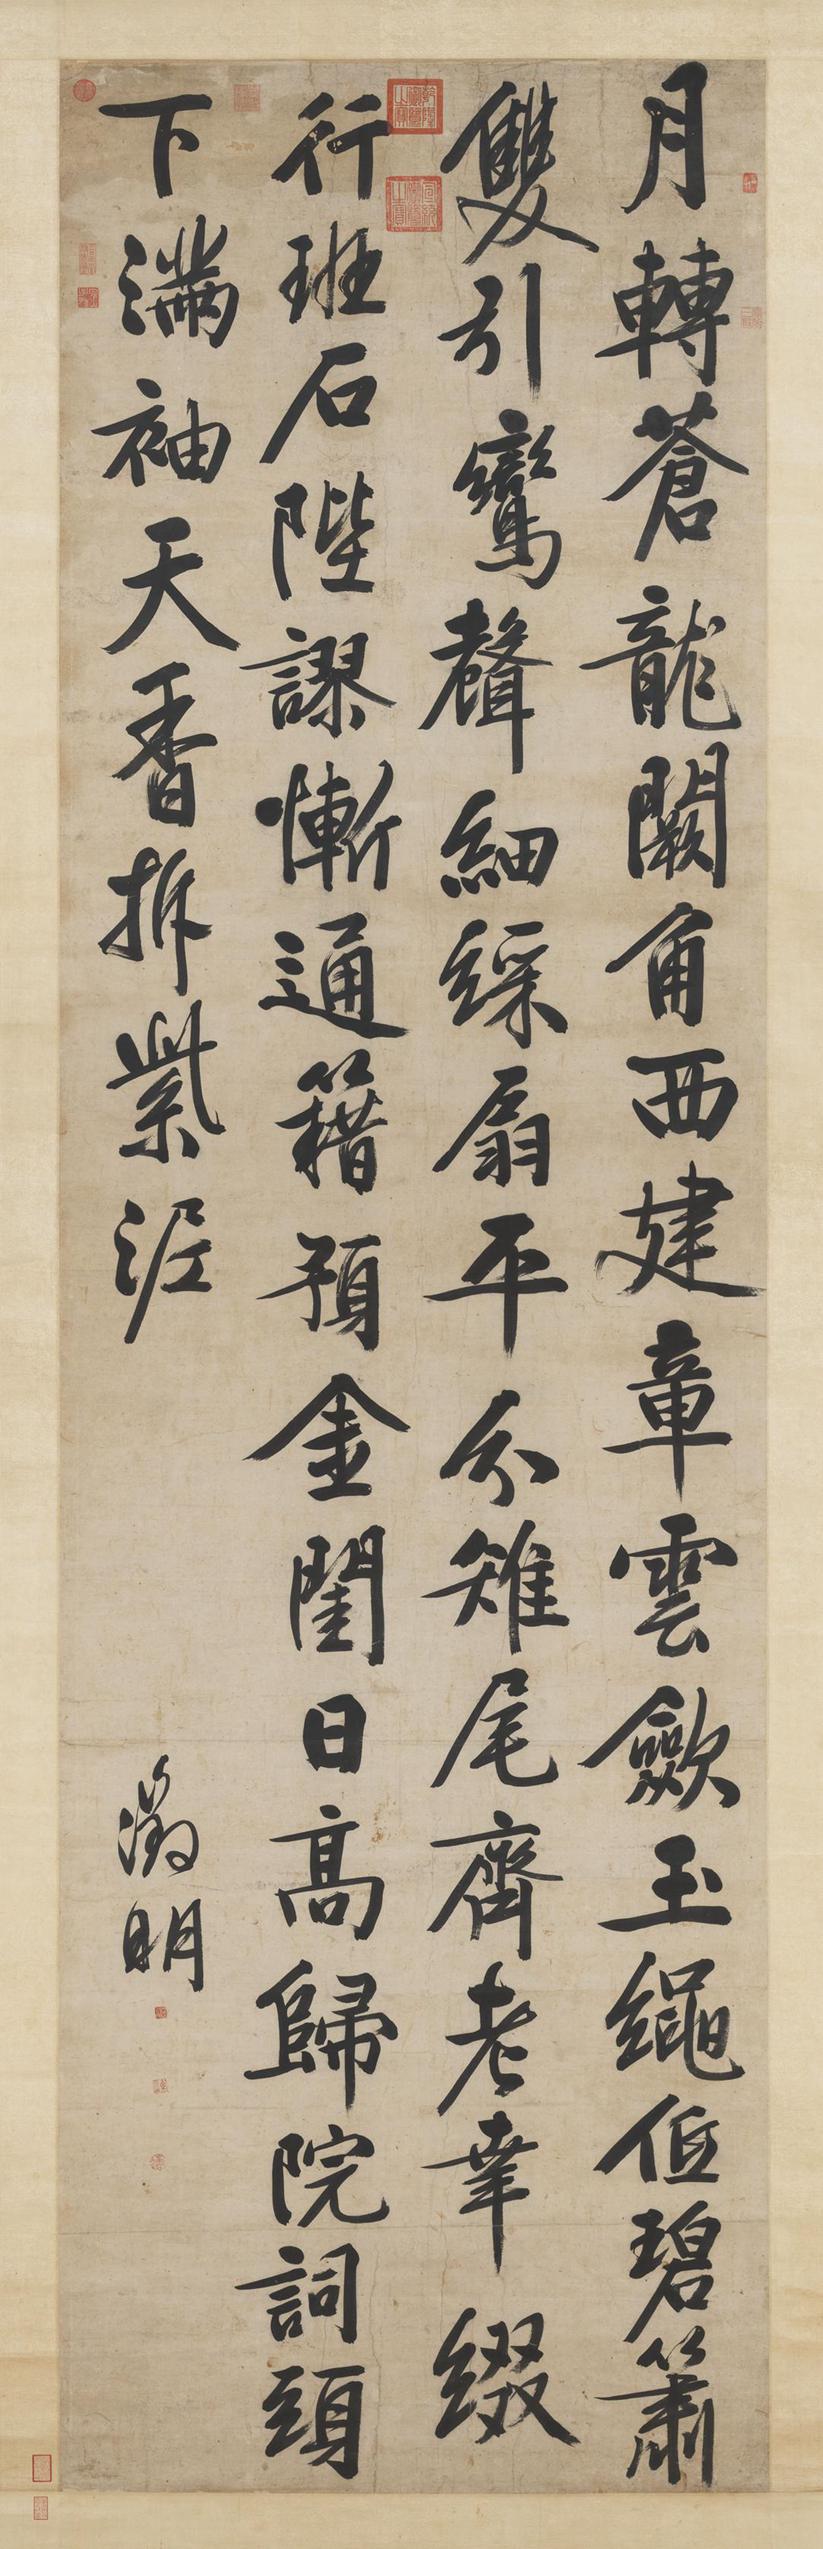 月轉蒼龍闕角西建章雲歛玉繩低碧簫
雙引鸞聲細綵扇平分雉尾齊老幸綴
行班石陛謬慚通籍預金閨日高歸院詞頭
下滿袖天香拆紫泥
徵明